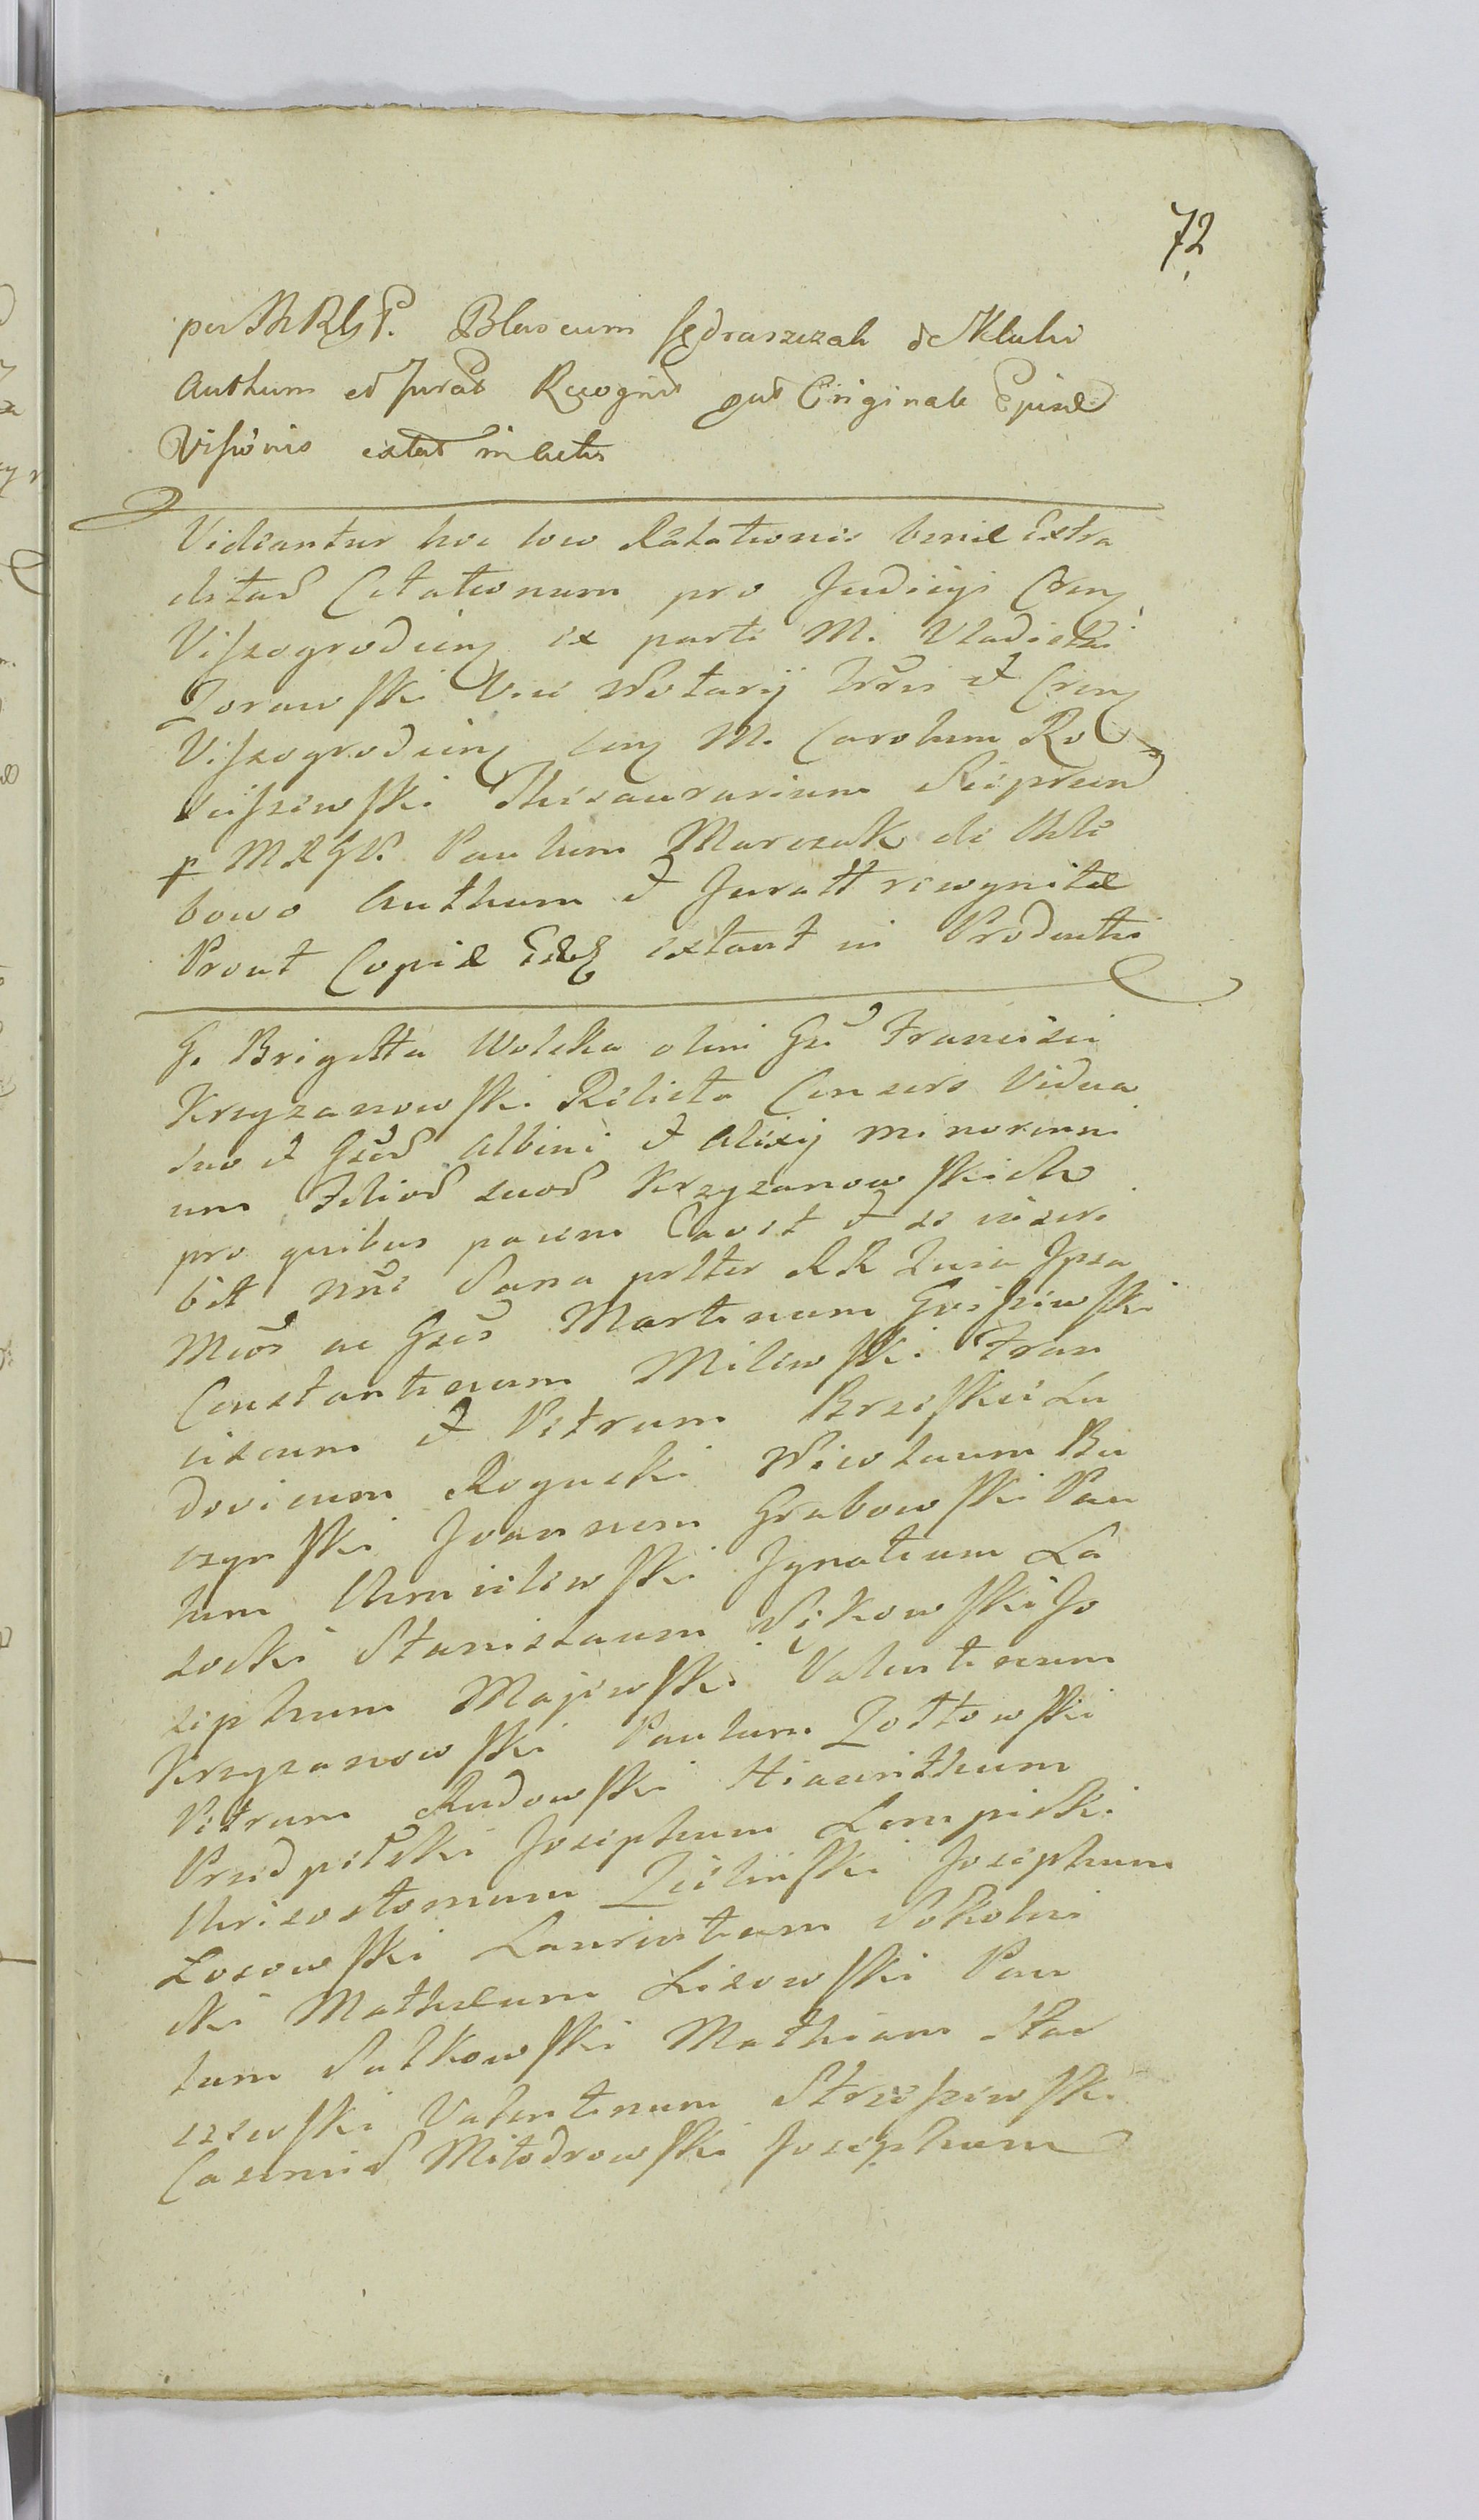 72
per M R G P. Blaseum Jędraszczak de
Authum et Jurat Recognit put Originale Ejusd
Visionis extat in Actis
Videantur hoc loco Relationes binæ Extra
ditar Citationum pro Judicys Cren
Viszogrodien ex parte M. Vladislai
Zorawski Vice Notarij Trris et Cren
Viszogrodien con M. Carolum Ro
ściszewski Thesaurarium Sieprcen
p M R G P. Paulum Marczak de Chle
bowo Authum et Juratt recognitæ
Prout Copiæ extant in Productis
G. Brigitta Wolska olim Gsi Francisci
Krzyzanowski Relicta Consors Vidua
suo et Gsor Albini et Alexij minorenni
um Filior suor Krzyzanowskich
pro quibus pacem Cavet et se inscri
bit nne Sana prlter RR Quia Ipsa
Mcos ac Gsos Martinum Goszewski
Constantinum Milewski Fran
ciscum et Petrum Brzeski Lu
dovicum Rogucki Nicolaum Bu
czynski Joannem Grabowski Pau
lum Chmielewski Ignatium La
socki Stanislaum Sękowski Jo
sephum Majewski Valentinum
Krzyzanowski Paulum Zołtowski
Petrum Rudowski Hiacinthum
Przedpełski Josephum Lempicki
Chrisostomum Zieliński Josephum
Losowski Laurentium Sokolni
cki Mathæum Lisowski Pau
lum Sutkowski Mathiam Star
czewski Valentinum Strzeszewski
Casimir Miłodrowski Josephum